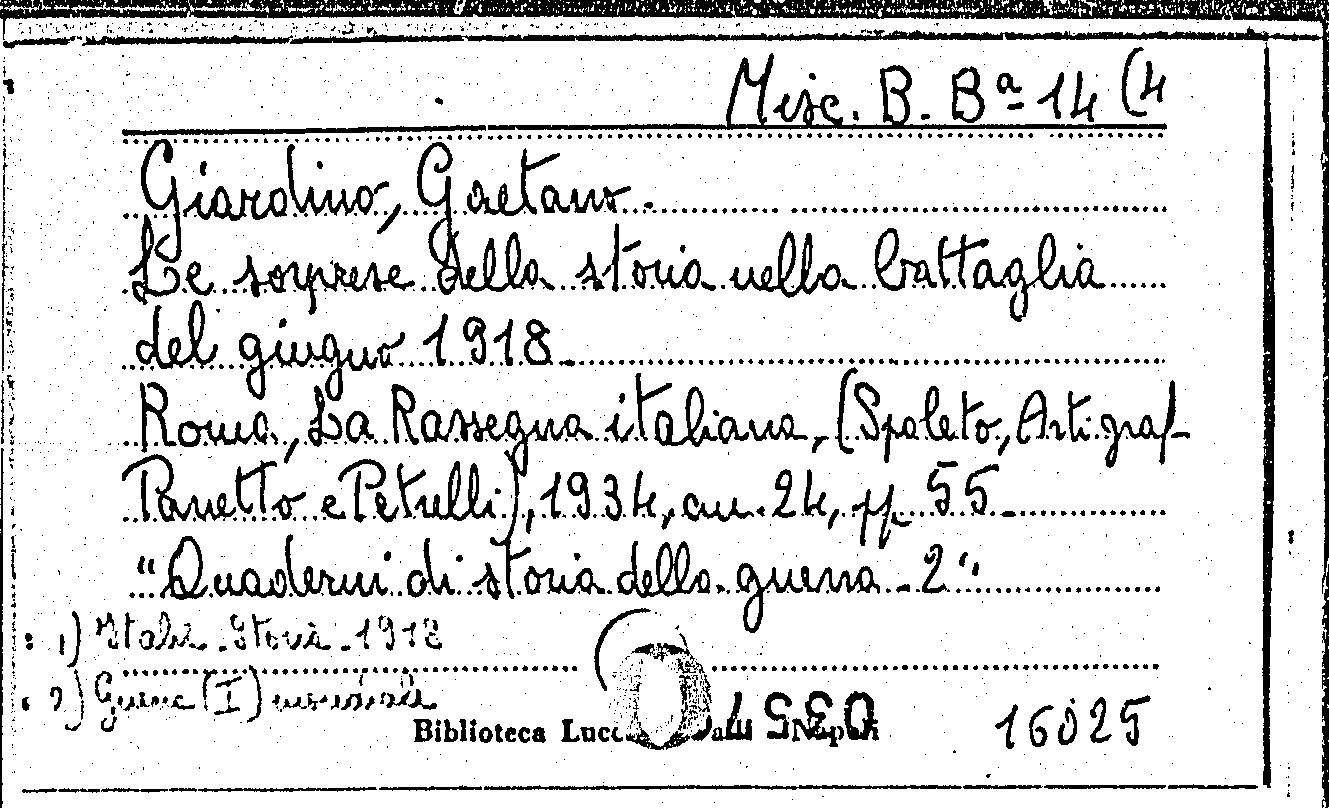 Misc. B. Bª 14 (4
Giardino, Gaetano.
Le sorprese della storia nella battaglia
del giugno 1918.
Roma, La Rassegna italiana, (Spoleto, Arti graf.
Panetto e Petrelli), 1934, an. 24, pp. 55.
"Quaderni di storia della guerra - 2".
1) Italia - Storia - 1918
2) Guerra (I) mondiale
Biblioteca Napoli
16025